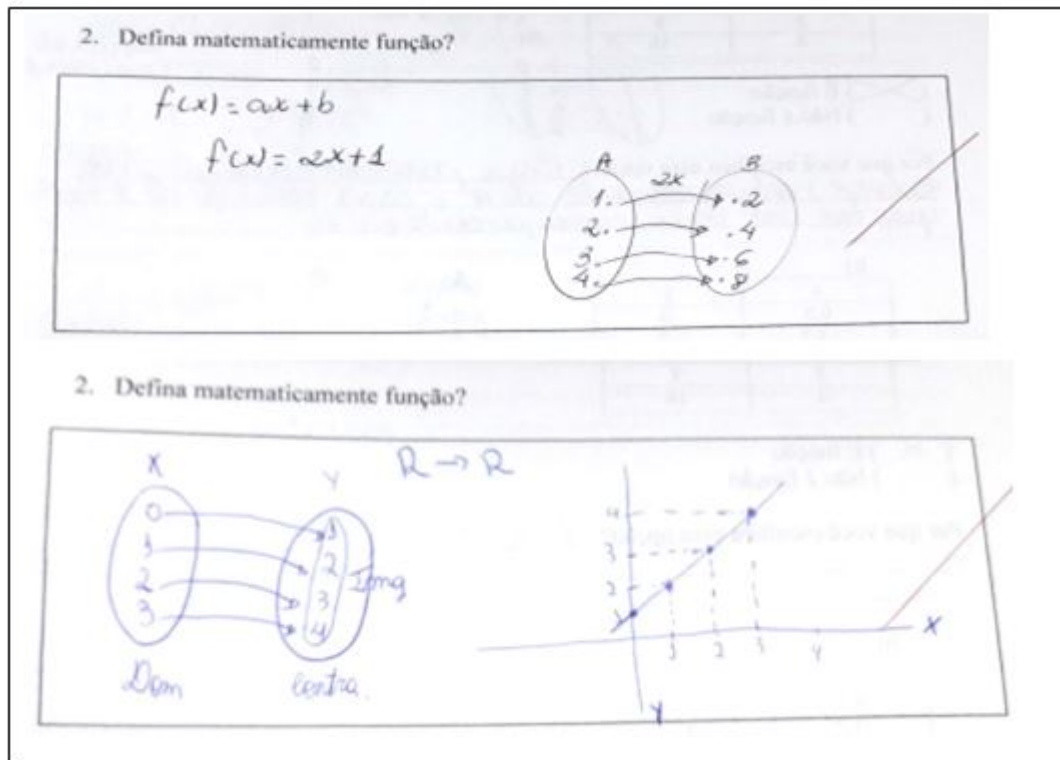 2. Defina matematicamente função?
f(x) = ax + b
f(x) = 2x + 1
A 2x B
1. .2
2. .4
3. .6
4. .8
2. Defina matematicamente função?
X Y R → R
0 1
1 2 Img
2 3
3 4
Dom Contra.
4
3
2
1
1 2 3 4 X
Y